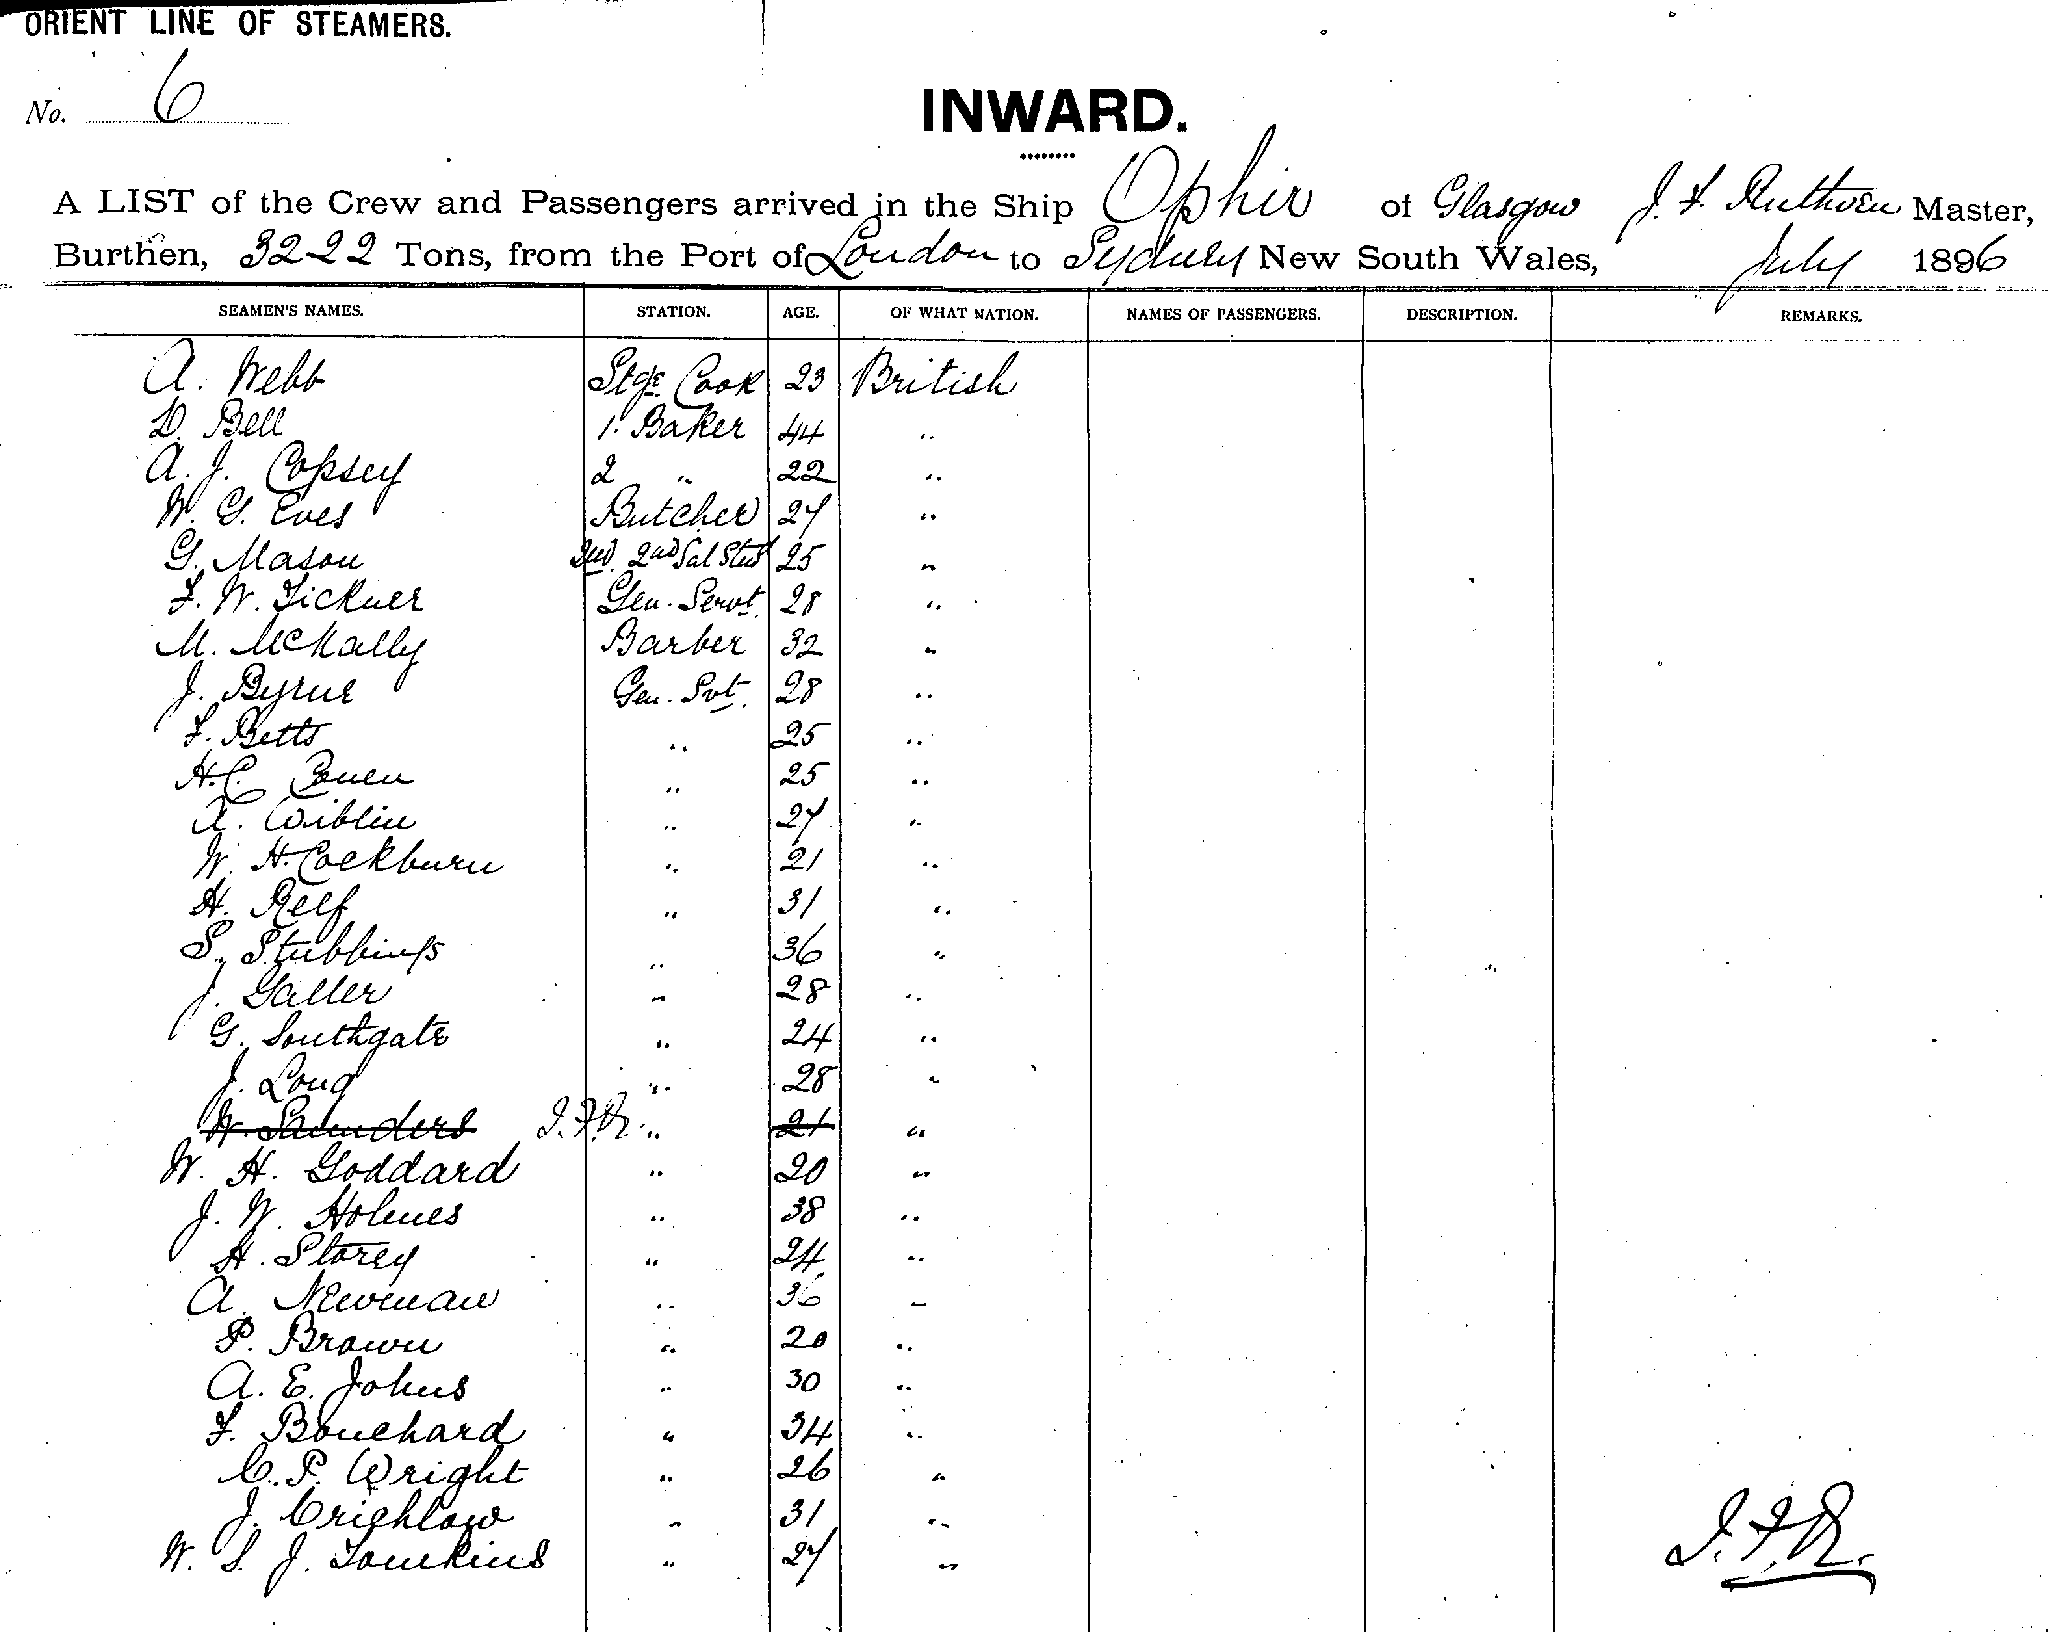 ORIENT LINE OF STEAMERS.
No. 6
INWARD.
A LIST of the Crew and Passengers arrived in the Ship Ophir of Glasgow J. F. Ruthven Master,
Burthen, 3222 Tons, from the Port of London to Sydney New South Wales, July 1896
SEAMEN'S NAMES. STATION. AGE. OF WHAT NATION. NAMES OF PASSENGERS. DESCRIPTION. REMARKS.
A. Webb Stge. Cook 23 British
D. Bell 1. Baker 44 "
A. J. Copsey 2 " 22 "
W. G. Eves Butcher 27 "
G. Mason 2nd Sal Stwd 25 "
F. W. Tickner Gen. Servt. 28 "
M. McNally Barber 32 "
J. Byrne Gen. Svt. 28 "
F. Betts " 25 "
H. C. " 25 "
A. Wiblin " 27 "
W. H. Cockburn " 21 "
H. Relf " 31 "
S. Stubbings " 36 "
J. Galler " 28 "
G. Southgate " 24 "
J. Long " 28 "
W. Saunders J.F.R. " 21 "
W. H. Goddard " 20 "
J. W. Holmes " 38 "
H. Storey " 24 "
A. Newman " 36 "
P. Brown " 20 "
A. E. Johns " 30 "
F. Bouchard " 34 "
C. P. Wright " 26 "
J. Crighlow " 31 "
W. S. J. Tomkins " 27 "
J.F.R.